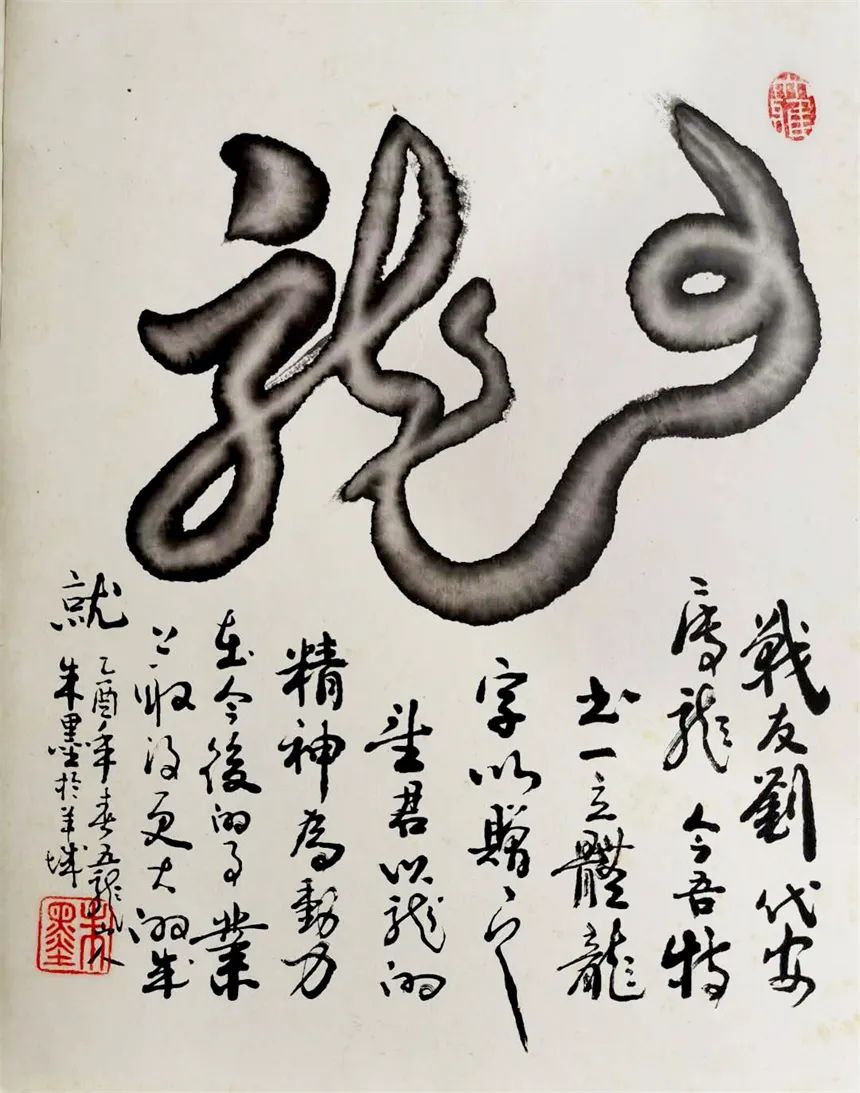 龍
戰友劉代安
属龍 今吾特
书一立體龍
字以贈之
望君以龍的
精神為動力
在今後的事業
上取得更大的成
就
乙酉年春五龍山人
朱墨於羊城
朱墨